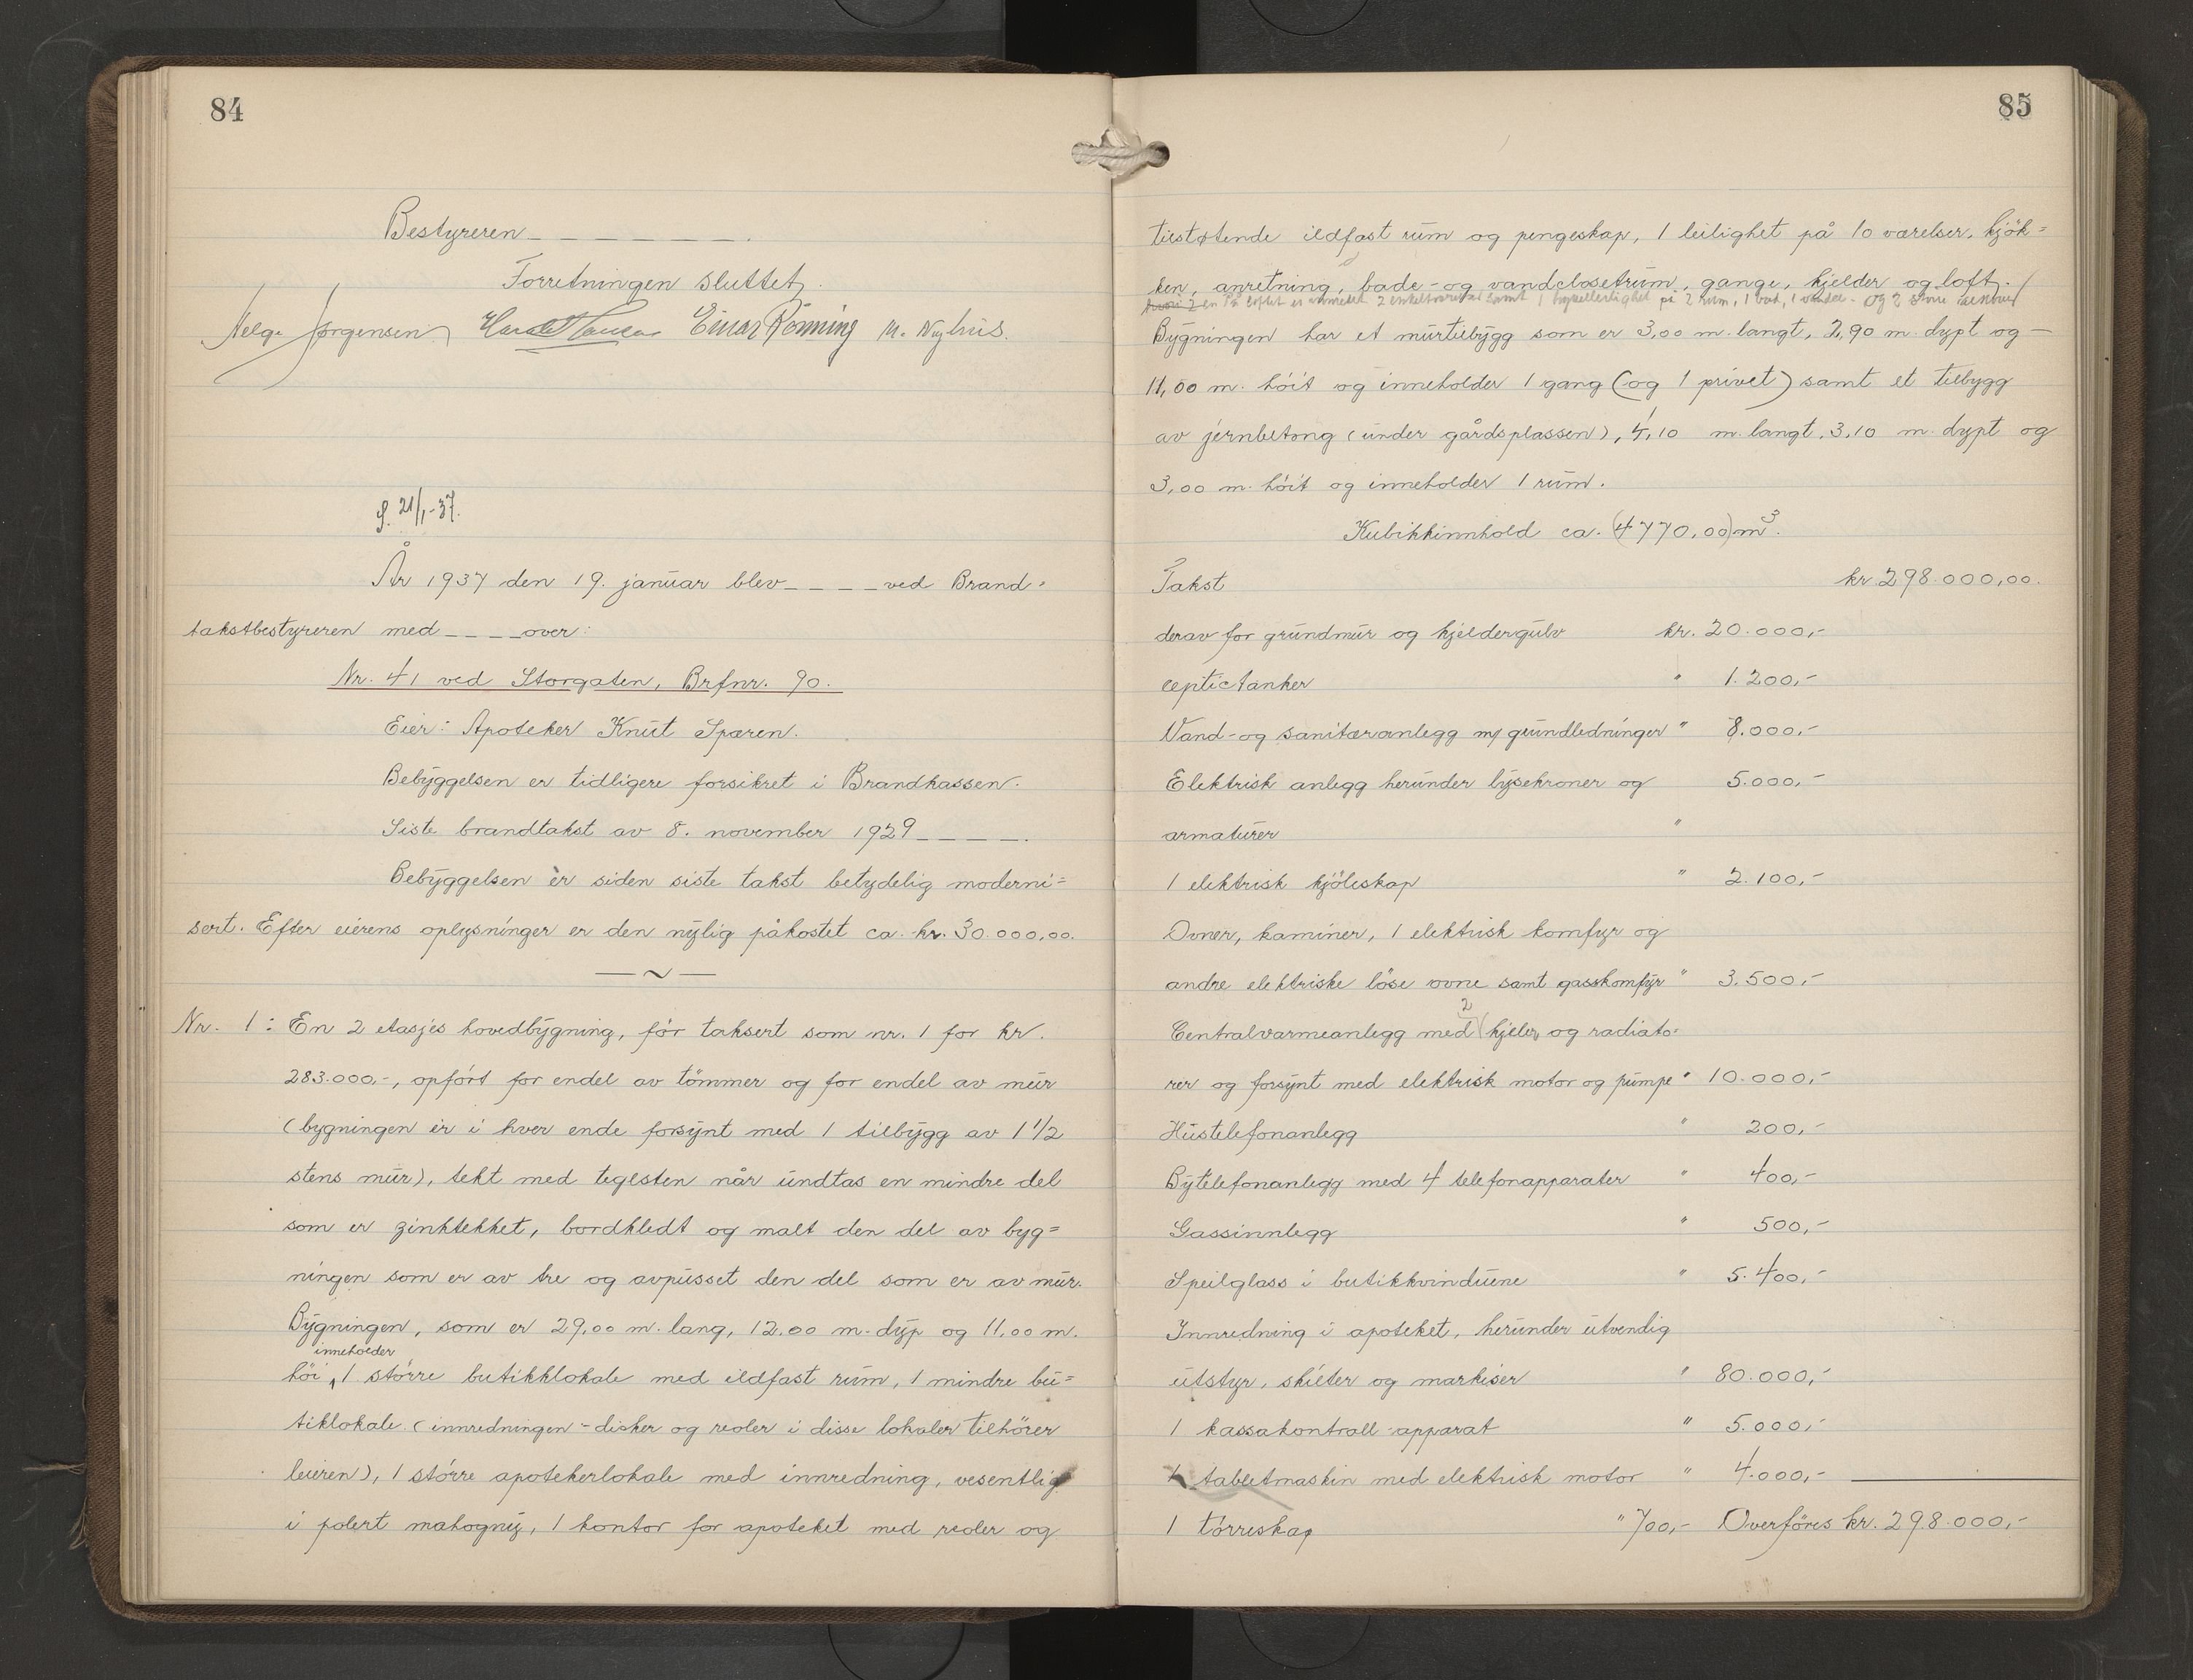 84
Bestyreren_ _ _ _ _ _ _.
Forretningen sluttet.
Helge Jørgensen Einar Rönning M. Nyhus.
S. 21/1-37.
År 1937 den 19. januar blev_ _ _ _ved Brand=
takstbestyreren med_ _ _ _over:
Nr. 41 ved Storgaten, Brfnr. 90.
Eier: Apoteker Knut Sparen.
Bebyggelsen er tidligere forsikret i Brandkassen.
Siste brandtakst av 8. november 1929_ _ _ _.
Bebyggelsen er siden siste takst betydelig moderni=
sert. Efter eierens oplysninger er den nylig påkostet ca. kr. 30.000,00.
— ~ —
Nr. 1: En 2 etasjes hovedbygning, før taksert som nr. 1 for kr.
283.000,-, opført for endel av tömmer og for endel av mur
(bygningen er i hver ende forsynt med 1 tilbygg av 1 1/2
stens mur), tekt med teglsten når undtas en mindre del
som er zinktekket, bordkledt og malt den del av byg=
ningen som er av tre og avpusset den del som er av mur.
Bygningen, som er 29,00 m. lang, 12.00 m. dyp og 11,00 m.
inneholder
höi, 1 större butikklokale med ildfast rum, 1 mindre bu=
tiklokale (innredningen - disker og reoler i disse lokaler tilhörer
leieren), 1 större apotekerlokale med innredning, vesentlig
i polert mahogny, 1 kontor for apoteket med reoler og
85
tilstøtende ildfast rum og pengeskap, 1 leilighet på 10 værelser, kjök=
ken, anretning, bade- og vandclosetrum, gange, kjelder og loft.
På loftet er innredet 2 enkeltværelser samt 1 leilighet på 2 rum, 1 bad, og 2
Bygningen har et murtilbygg som er 3,00 m. langt, 2,90 m. dypt og —
11,00 m. höit og inneholder 1 gang (og 1 privet) samt et tilbygg
av jernbetong (under gårdsplassen), 4,10 m. langt, 3,10 m. dypt og
3,00 m. höit og inneholder 1 rum.
Kubikkinnhold ca. (4770,00) m3.
Takst kr. 298.000,00.
derav for grundmur og kjeldergulv kr. 20.000,-
septictanker " 1.200,-
Vand- og sanitæranlegg m/ grundledninger " 8.000,-
Elektrisk anlegg herunder lysekroner og 5.000,-
armaturer "
1 elektrisk kjöleskap " 2.100,-
Ovner, kaminer, 1 elektrisk komfyr og
andre elektriske löse ovne samt gasskomfyr " 3.500,-
2
Centralvarmeanlegg med (kjeler, og radiato=
rer og forsynt med elektrisk motor og pumpe " 10.000,-
Hustelefonanlegg " 200,-
Bytelefonanlegg med 4 telefonapparater " 400,-
Gassinnlegg " 500,-
Speilglass i butikkvinduene " 5.400,-
Innredning i apoteket, herunder utvendig
utstyr, skilter og markiser " 80.000,-
1 kassakontroll-apparat " 5.000,-
1 tabletmaskin med elektrisk motor " 4.000,-
1 törreskap " 700,- Overföres kr. 298.000,-